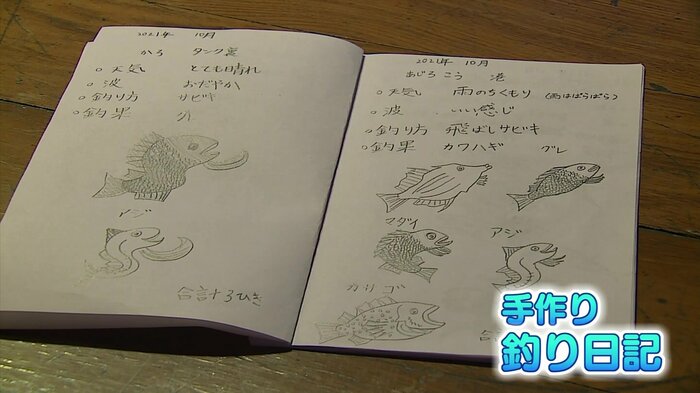 2021年 10月
かろ タンク裏
○天気 とても晴れ
○波 おだやか
○釣り方 サビキ
○釣果
アジ
合計 ひき
2021年 10月
あじろこう 港
○天気 雨のちくもり (雨はぱらぱら)
○波 いい感じ
○釣り方 飛ばしサビキ
○釣果 カワハギ グレ
マダイ
アジ
カサゴ
合
手作り
釣り日記